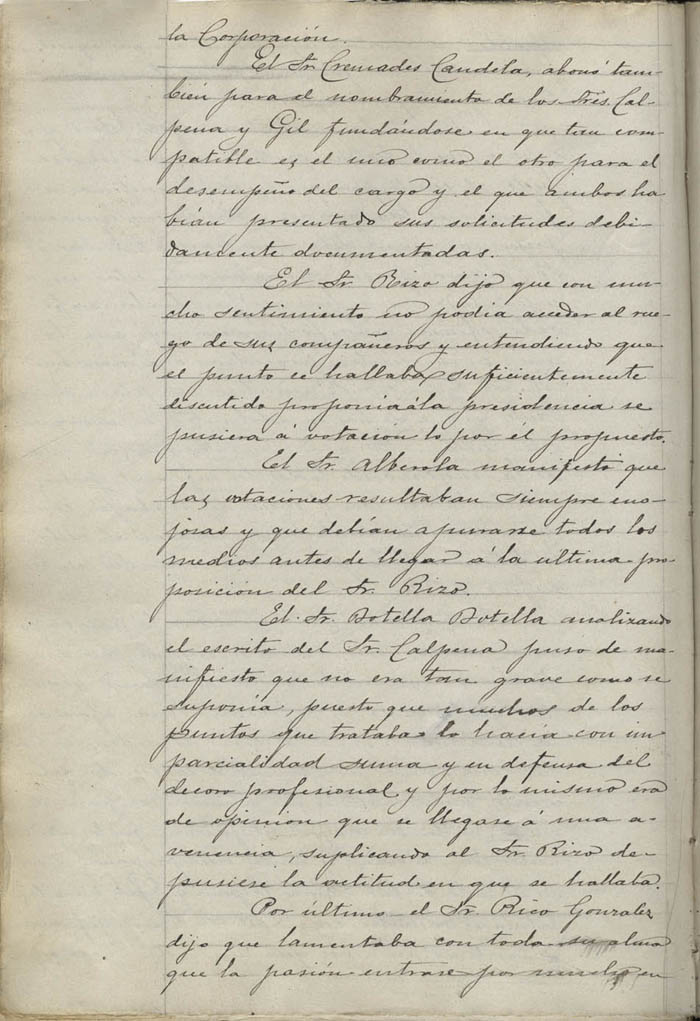 la Corporación.
El Sr. Cremades Candela, abonó tam-
bién para el nombramiento de los Sres. Cal-
pena y Gil fundándose en que tan com-
patible es el uno como el otro para el
desempeño del cargo y el que ambos ha
bían presentado sus solicitudes debi-
damente documentadas.
El Sr. Rizo dijo que con mu-
cho sentimiento no podia acceder al rue-
go de sus compañeros y entendiendo que
el punto se hallaba suficientemente
discutido proponía á la presidencia se
pusiera á votación lo por él propuesto.
El Sr. Alberola manifestó que
las votaciones resultaban siempre eno-
josas y que debían apurarse todos los
medios antes de llegar á la ultima pro-
posición del Sr. Rizo.
El Sr. Botella Botella analizando
el escrito del Sr. Calpena puso de ma-
nifiesto que no era tan grave como se
suponía, puesto que muchos de los
puntos que trataba lo hacía con im
parcialidad suma y en defensa del
decoro profesional y por lo mismo era
de opinión que se llegase á una a-
venencia, suplicando al Sr. Rizo de-
pusiese la actitud en que se hallaba.
Por último el Sr. Rico Gonzalez
dijo que lamentaba con toda su alma
que la pasión entrase por mucho en